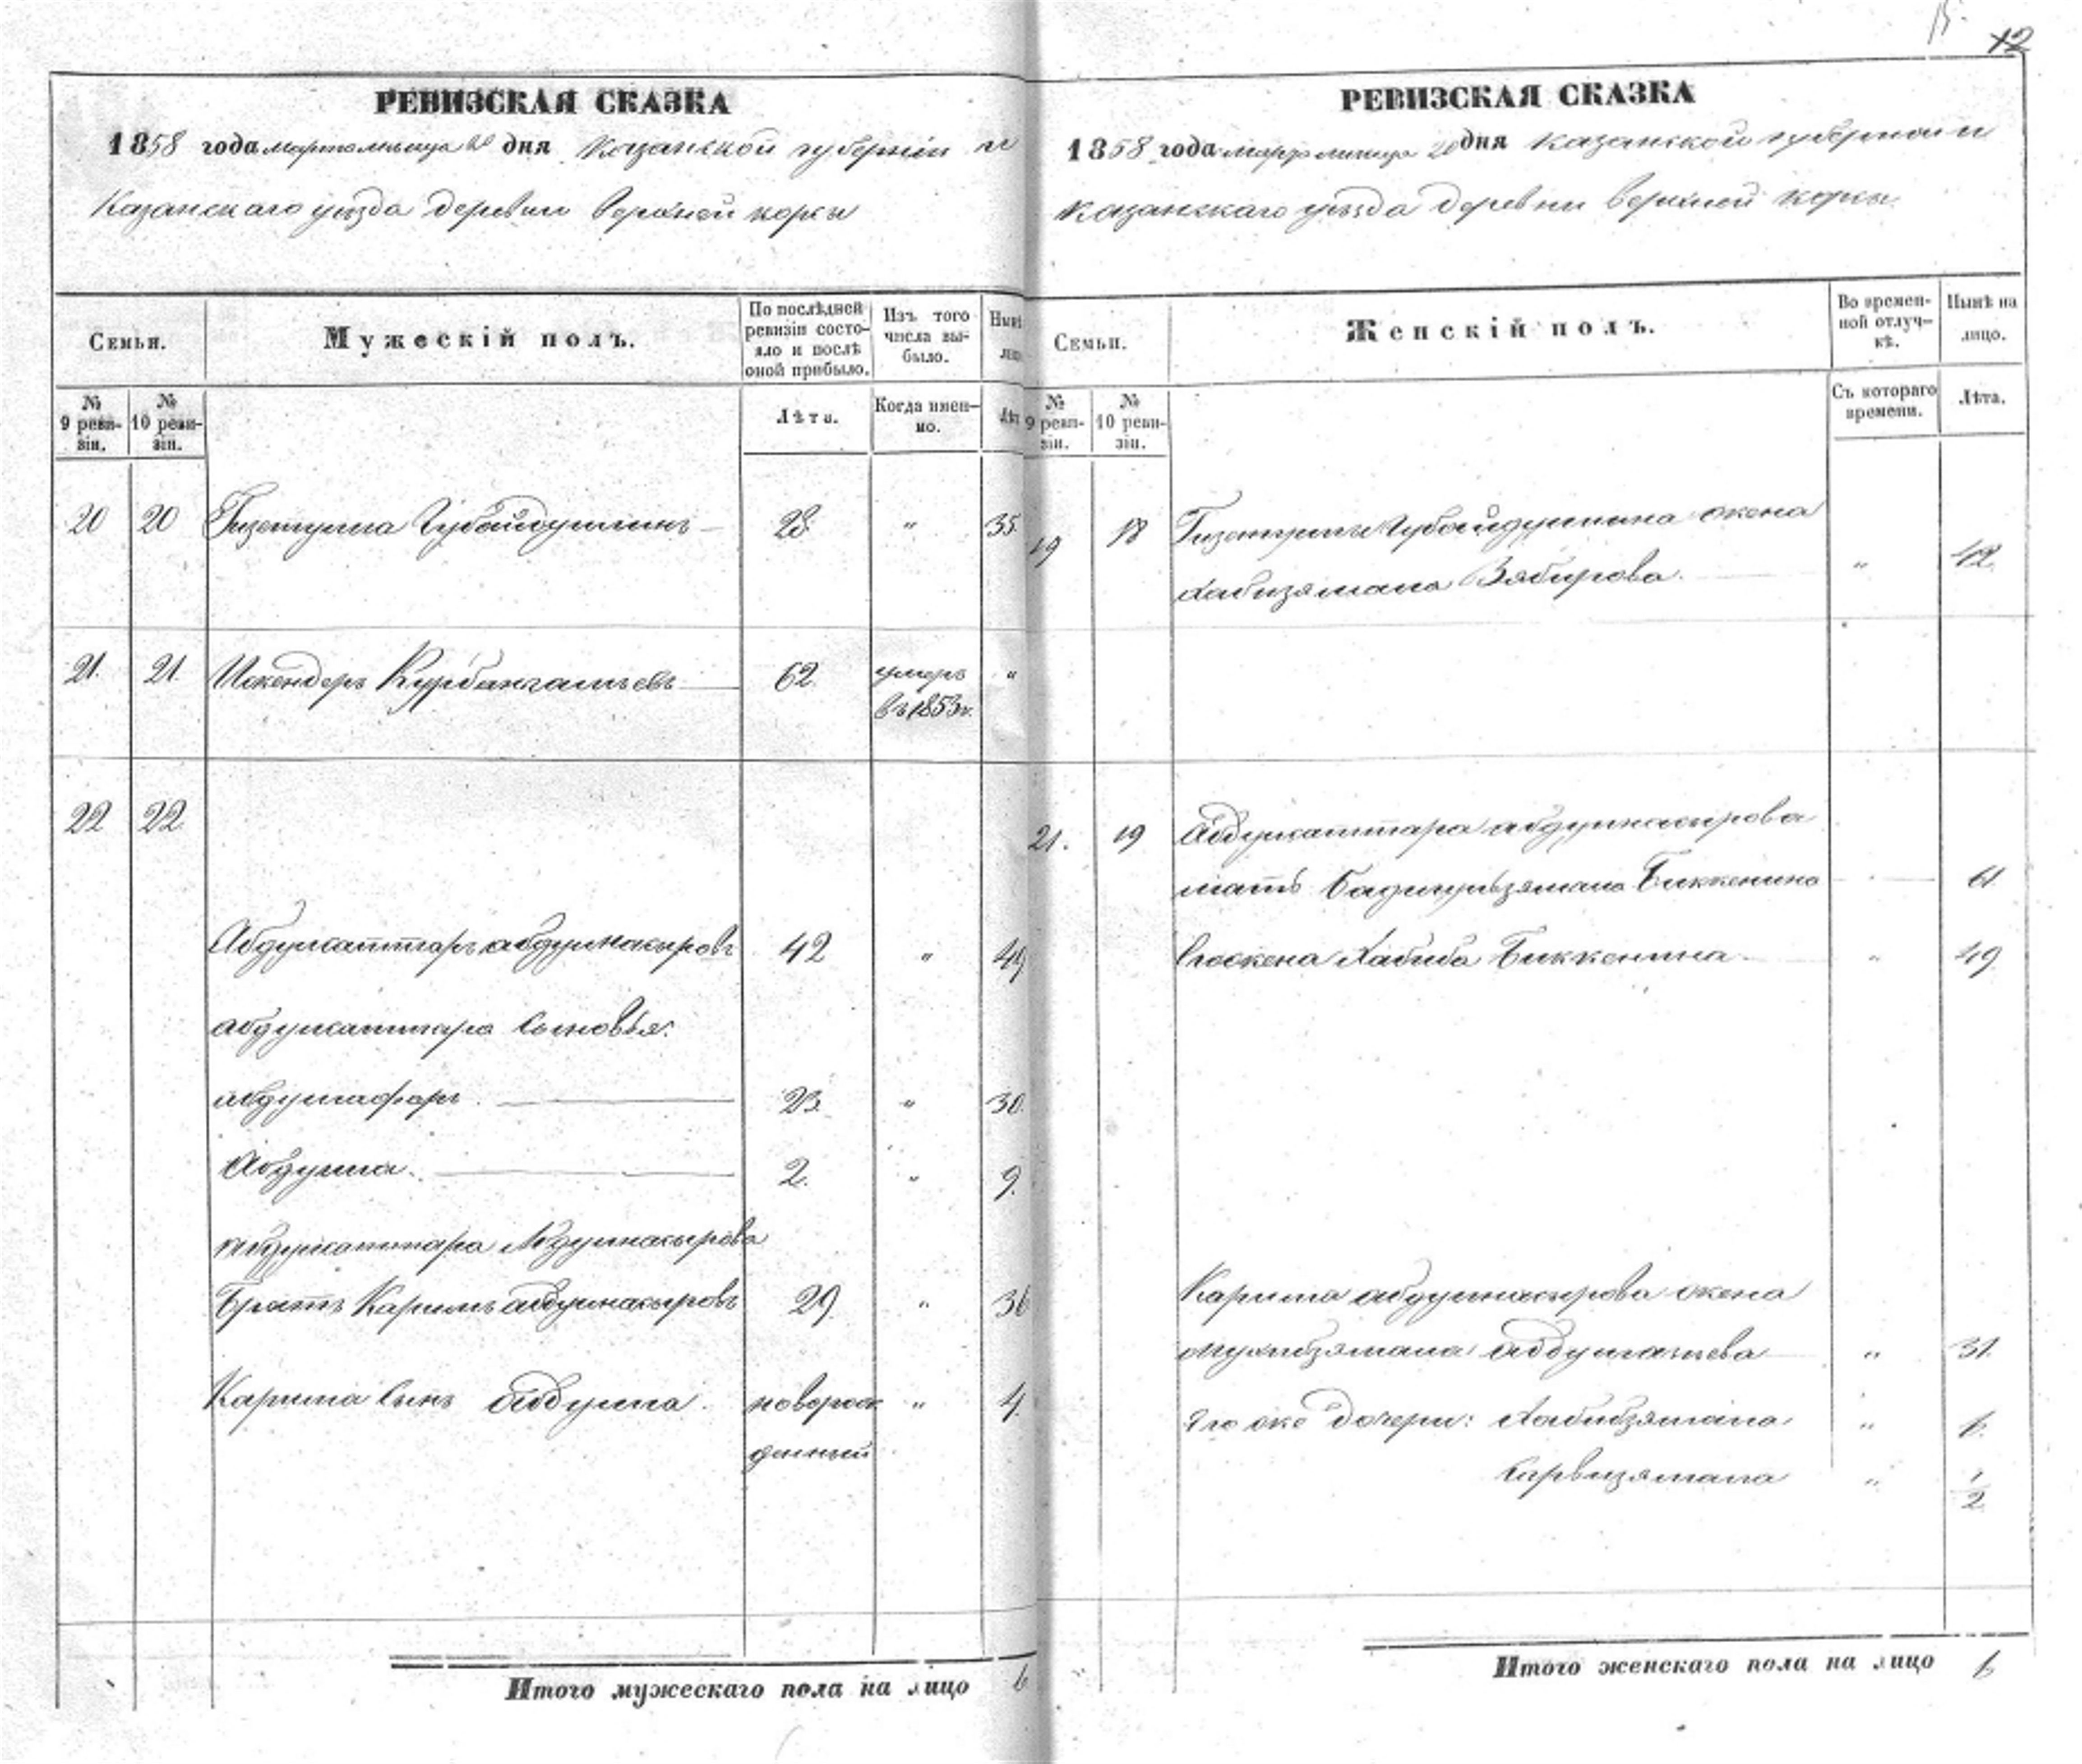 12
РЕВИЗСКАЯ СКАЗКА
1858 года марта месяца 20 дня Казанской губернии и
Казанскаго уѣзда деревни Верхней Корсы
Семьи.
Мужескій полъ.
По послѣдней ревизіи состояло и послѣ оной прибыло.
Изъ того числа выбыло.
Нынѣ
лицо
№ 9 реви-зіи.
№ 10 реви-зіи.
Лѣта.
Когда имен-но.
Лѣт
20 20 Гизетулла Губайдуллинъ 28 " 35
21. 21. Искендеръ Курбангалѣевъ 62. умеръ "
въ 1853 г.
22 22
Абдулсаттаръ абдулнасыровъ 42 " 49
абдулсаттара сыновья:
абдулгафаръ. 23. " 30.
Абдулла. 2. " 9.
абдулсаттара Абдулнасырова
братъ Каримъ абдулнасыровъ 29. " 36
Карима сынъ абдулла. новорож " 4.
денный
Итого мужескаго пола на лицо 6
РЕВИЗСКАЯ СКАЗКА
1858 года марта месяца 20 дня Казанской губернии и
Казанскаго уѣзда деревни верхней корсы
Семьи.
Женскій полъ.
Во времен-ной отлуч-кѣ.
Нынѣ на лицо.
№ 9 реви-зіи.
№ 10 реви-зіи.
Съ котораго времени.
Лѣта.
19 18 Гизетуллы Губайдуллина жена
Хабизямала Зябирова. " 42.
21. 19 Абдулсаттара абдулнасырова
мать Бадигулзямала Биккенина 61.
Его жена Хабиба Биккенина " 49.
Карима абдулнасырова жена
абдулгалиева " 31.
Его же дочери: Хабибзямала " 6.
" 1/2
Итого женскаго пола на лицо 6